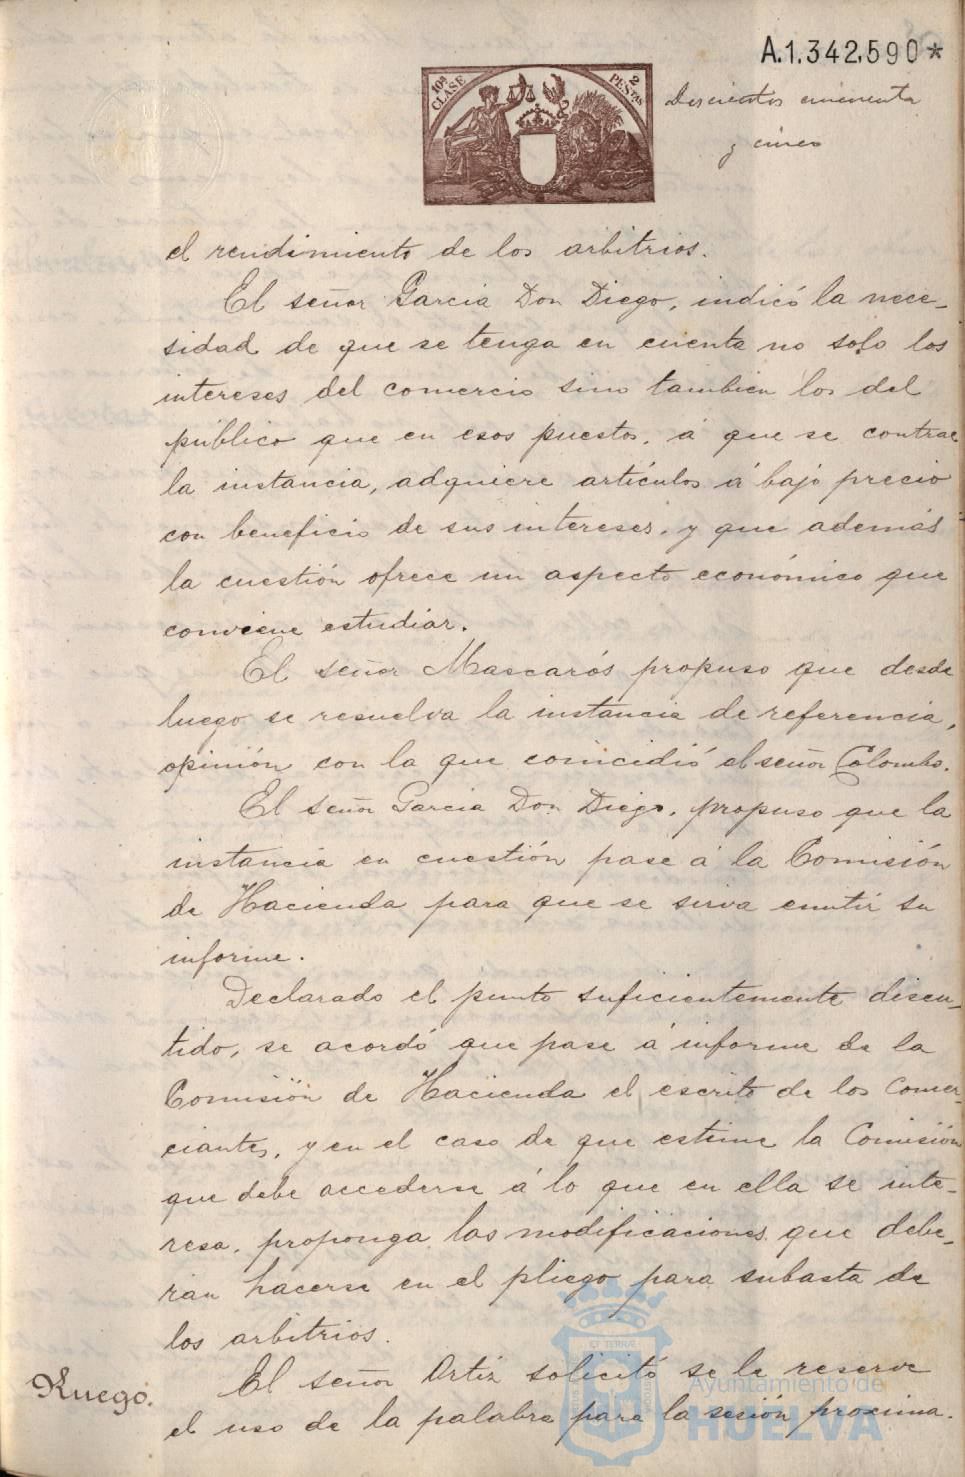 A.1.342.590*
10ª CLASE
2 PESTAS
Doscientos cincuenta
y cinco
el rendimiento de los arbitrios.
El señor Garcia Don Diego, indicó la nece-
sidad de que se tenga en cuenta no solo los
intereses del comercio sino tambien los del
público que en esos puestos, á que se contrae
la instancia, adquiere artículos á bajo precio
con beneficio de sus intereses, y que además
la cuestión ofrece un aspecto económico que
conviene estudiar.
El señor Mascarós propuso que desde
luego se resuelva la instancia de referencia,
opinión con la que coincidió el señor Colombo.
El señor Garcia Don Diego, propuso que la
instancia en cuestión pase á la Comisión
de Hacienda para que se sirva emitir su
informe.
Declarado el punto suficientemente discu-
tido, se acordó que pase á informe de la
Comisión de Hacienda el escrito de los Comer-
ciantes, y en el caso de que estime la Comisión
que debe accederse á lo que en ella se inte-
resa, proponga las modificaciones que debe-
rán hacerse en el pliego para subasta de
los arbitrios.
Ruego.
El señor Ortiz solicitó se le reserve
el uso de la palabra para la sesión proxima.
Ayuntamiento de
HUELVA